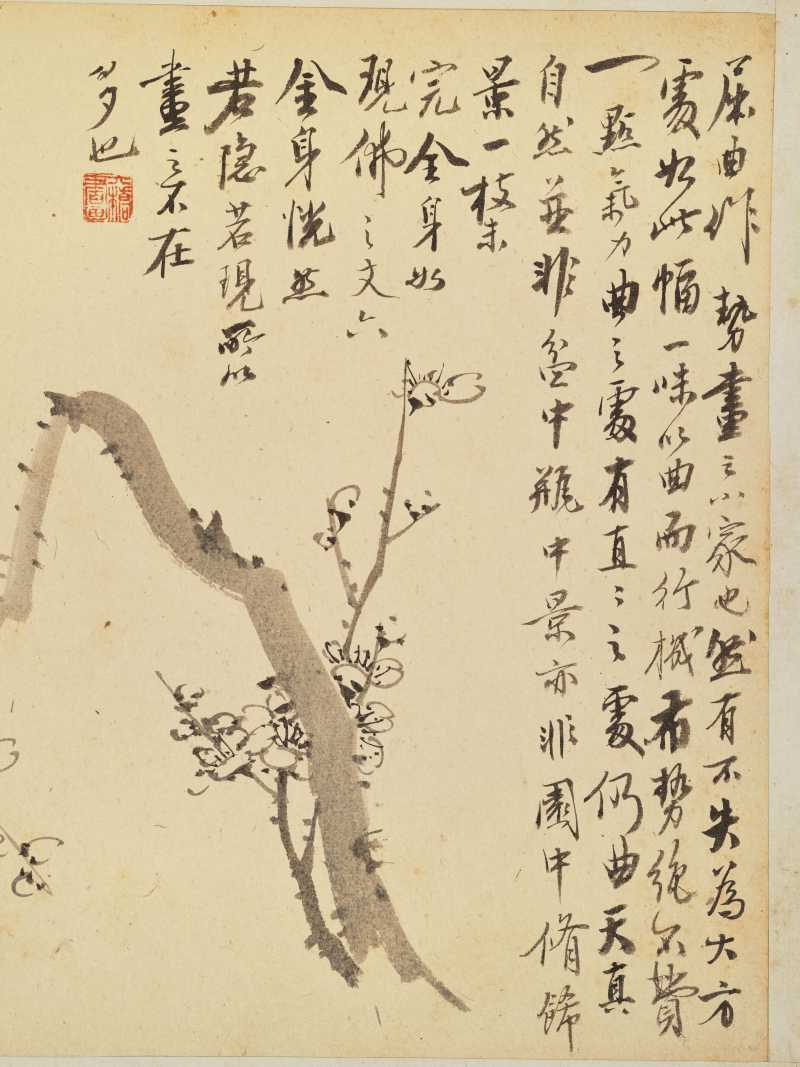 屈曲作勢畫之小家也然有不失為大方
處如此幅一味以曲而行機布勢絶不費
一點氣力曲之處有直之之處仍曲天真
自然並非盆中瓶中景亦非園中脩飾
景一枝未
完全身如
現佛之丈六
金身恍然
若隐若現所以
畫之不在
多也